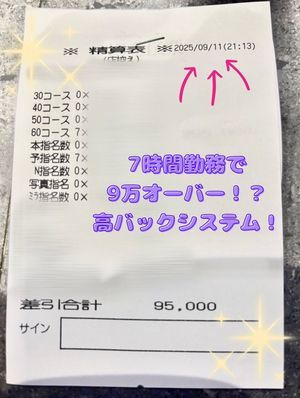 ※ 精算表 ※2025/09/11(21:13)
(店控え)
30コース 0×
40コース 0×
50コース 0×
60コース 7×
本指名数 0×
予指名数 7×
N指名数 0×
写真指名 0×
ミラ指名数 0×
7時間勤務で
9万オーバー！？
高バックシステム！
差引合計 95,000
サイン